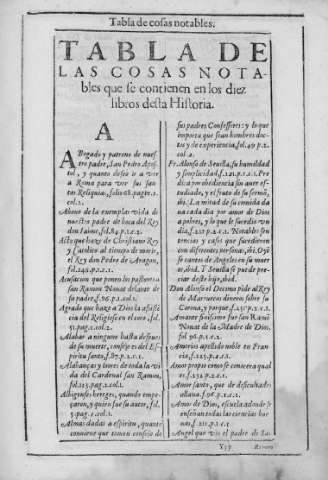 Tabla de cosas notables.
TABLA DE
LAS COSAS NOTA-
bles que se contienen en los diez
libros desta Historia.
A
Abogado y patrono de nues-
tro padre, san Pedro Apos-
tol, y quanto deseo ir a ver
a Roma para ver sus san
tas Reliquias, folio 68. pagin. 1.
col. 2.
Abono de la exemplar vida de
nuestro padre de boca del Rey
don Iaime, fol. 84. p. 1. c. 2.
Acto que haze de Christiano Rey
y Catolico al tiempo de morir,
el Rey don Pedro de Aragon,
fol. 242. p. 2. c. 1.
Acusacion que ponen los pastores a
san Ramon Nonat delante de
su padre, f. 96. p. 1. col. 1.
Agrado que haze a Dios la assisten
cia del Religioso en el coro, fol.
53. pag. 2. col. 2.
Alabar a ninguno hasta despues
de su muerte, consejo es del Es-
piritu santo, f. 87. p. 2. c. 1.
Alabanças y loores de toda la vi-
da del Cardenal san Ramon,
fol. 123. pag. 2. col. 1.
Albigenses hereges, quando empe-
çaron, y quien fue su autor, fol.
5. pag. 1. col. 2.
Almas dadas a espiritu, quanto
conviene que tomen consejo de
sus padres Confessores: y lo que
importa que sean hombres doc-
tos y de experiencia, fol. 49. p. 2.
col. 2.
Fr. Alonso de Sevilla, su humildad
y simplicidad, f. 221. p. 1. c. 1. Pre
dica por obediencia sin aver es-
tudiado, y el fruto de su sermõ,
ibi. La mitad de su comida da
va cada dia por amor de Dios
a pobres, y lo que le sucedio vn
dia, f. 221. p. 2. c. 1. Notables sen
tencias y casos que sucedieron
con diferentes personas, ibi. Oyẽ
se cantos de Angeles en su muer
te, ibid. Y Sevilla se puede pre-
ciar deste hijo, ibid.
Don Alonso el Decimo pide al Rey
de Marruecos dinero sobre su
Corona, y porque, f. 237. p. 1. c. 1.
Amante finissimo fue san Ramõ
Nonat de la Madre de Dios,
fol. 96. p. 1. c. 1.
Amerios apellido noble en Fran-
cia, f. 223. p. 2. c. 1.
Amor propio como se conoce a qual
es, f. 232. p. 2. c. 1.
Amor santo, que de descuitada
allana, f. 76. p. 2. c. 1.
Amor de Dios, escuela adonde se
enseñan todas las ciencias bue-
nas, f. 211. p. 1. c. 1.
Angel que vio el padre de sa-
Yyy
Ramon